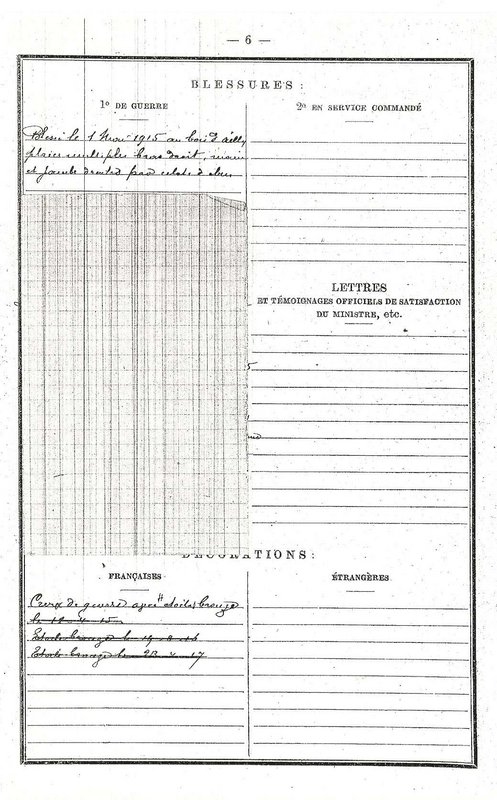 — 6 —
BLESSURES :
1º DE GUERRE
2º EN SERVICE COMMANDÉ
Blessé le 1 Mai 1915 au bois d'ailly
plaies multiples bras droit, main
et jambe droites par éclats d'obus
LETTRES
ET TÉMOIGNAGES OFFICIELS DE SATISFACTION
DU MINISTRE, etc.
5
DÉCORATIONS :
FRANÇAISES
ÉTRANGÈRES
Croix de guerre avec étoiles bronze
le 12-4-15
Etoile bronze le
Etoile bronze le 17